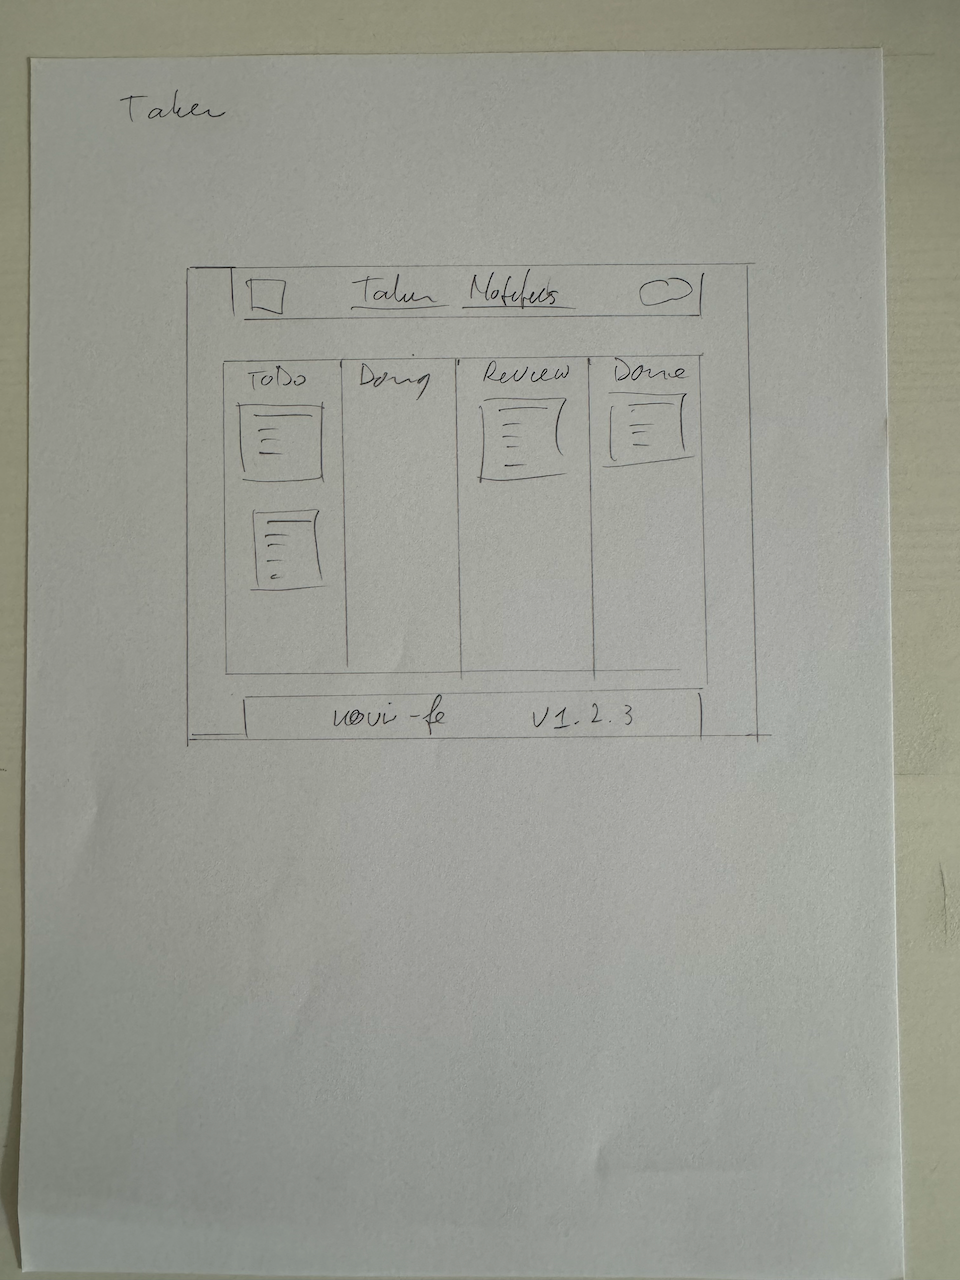 Taken
Taken Notities
ToDo Doing Review Done
novi-fe v1.2.3